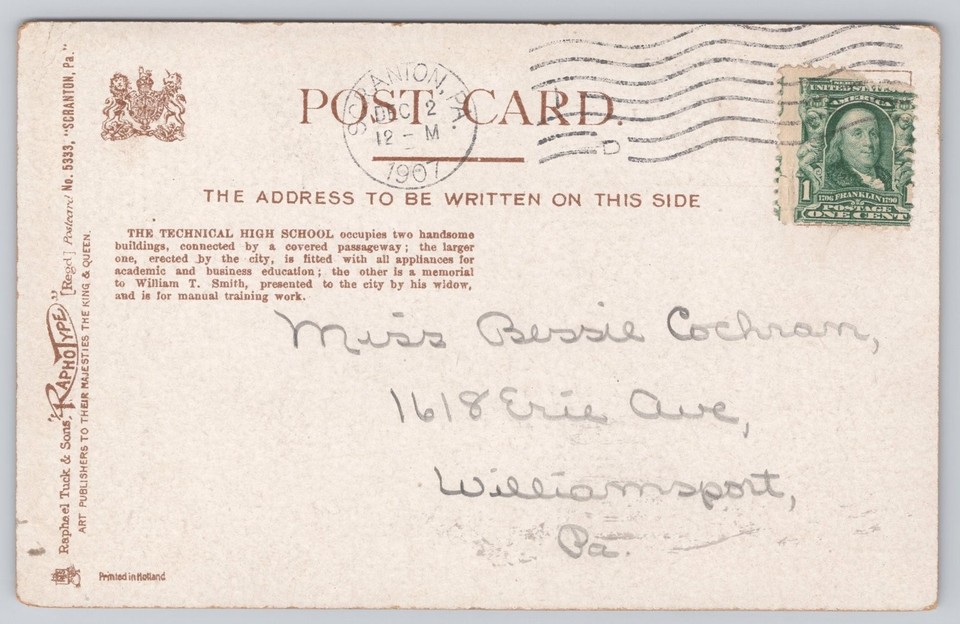 POST CARD.
SCRANTON, PA.
DEC 2
12 - M
1907
D
UNITED STATES
AMERICA
1
1706 FRANKLIN 1790
POSTAGE
ONE CENT
THE ADDRESS TO BE WRITTEN ON THIS SIDE
THE TECHNICAL HIGH SCHOOL occupies two handsome
buildings, connected by a covered passageway; the larger
one, erected by the city, is fitted with all appliances for
academic and business education; the other is a memorial
to William T. Smith, presented to the city by his widow,
and is for manual training work.
Miss Bessie Cochran,
1618 Erie Ave,
Williamsport,
Pa.
Raphael Tuck & Sons' "RAPHOTYPE" [Regd] Postcard No. 5333, "SCRANTON, Pa."
ART PUBLISHERS TO THEIR MAJESTIES THE KING & QUEEN.
Printed in Holland